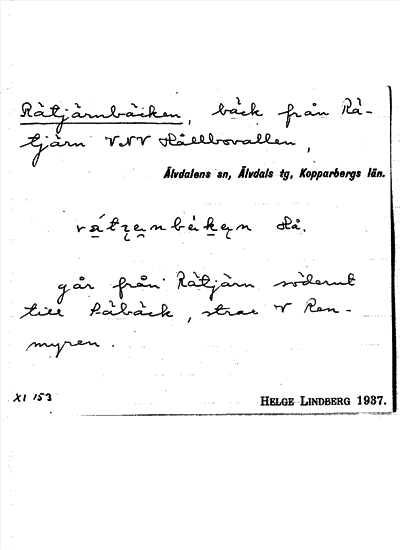 Råtjärnbäcken, bäck från Rå-
tjärn VNV Hållbovallen,
Älvdalens sn, Älvdals tg, Kopparbergs län.
Hå.
går från Råtjärn söderut
till Råbäck, strax V Ren-
myren.
XI 153
HELGE LINDBERG 1937.